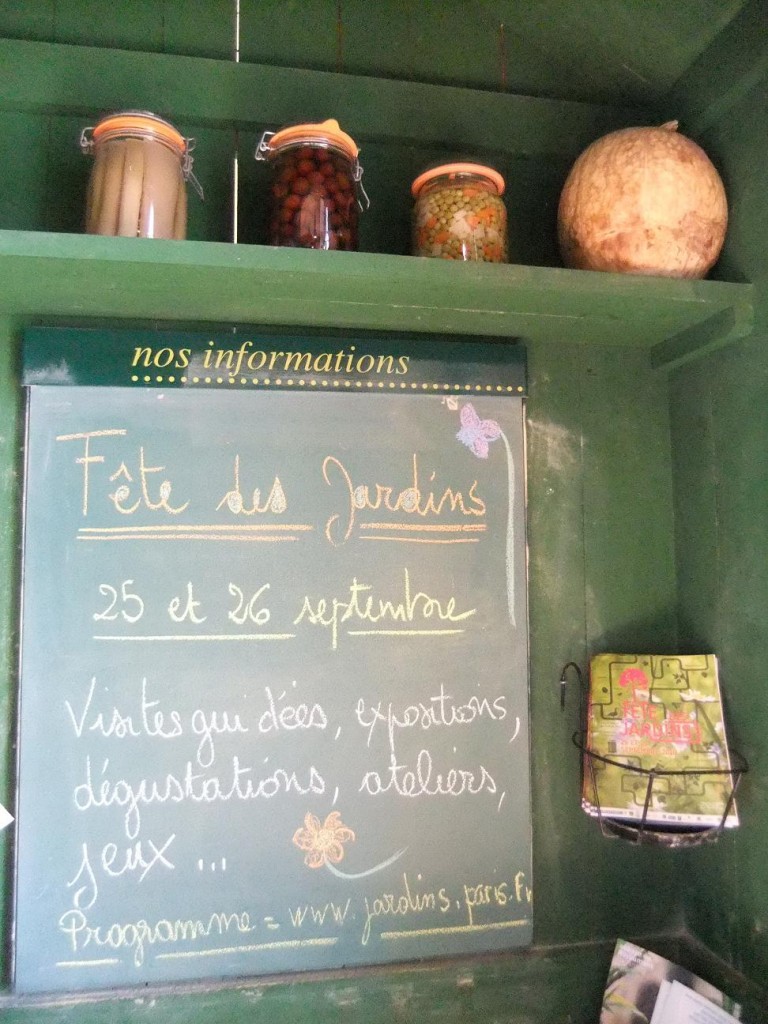 nos informations
Fête des Jardins
25 et 26 septembre
Visites guidées, expositions,
dégustations, ateliers,
jeux ...
Programme = www.jardins.paris.fr
FÊTE DES
JARDINS